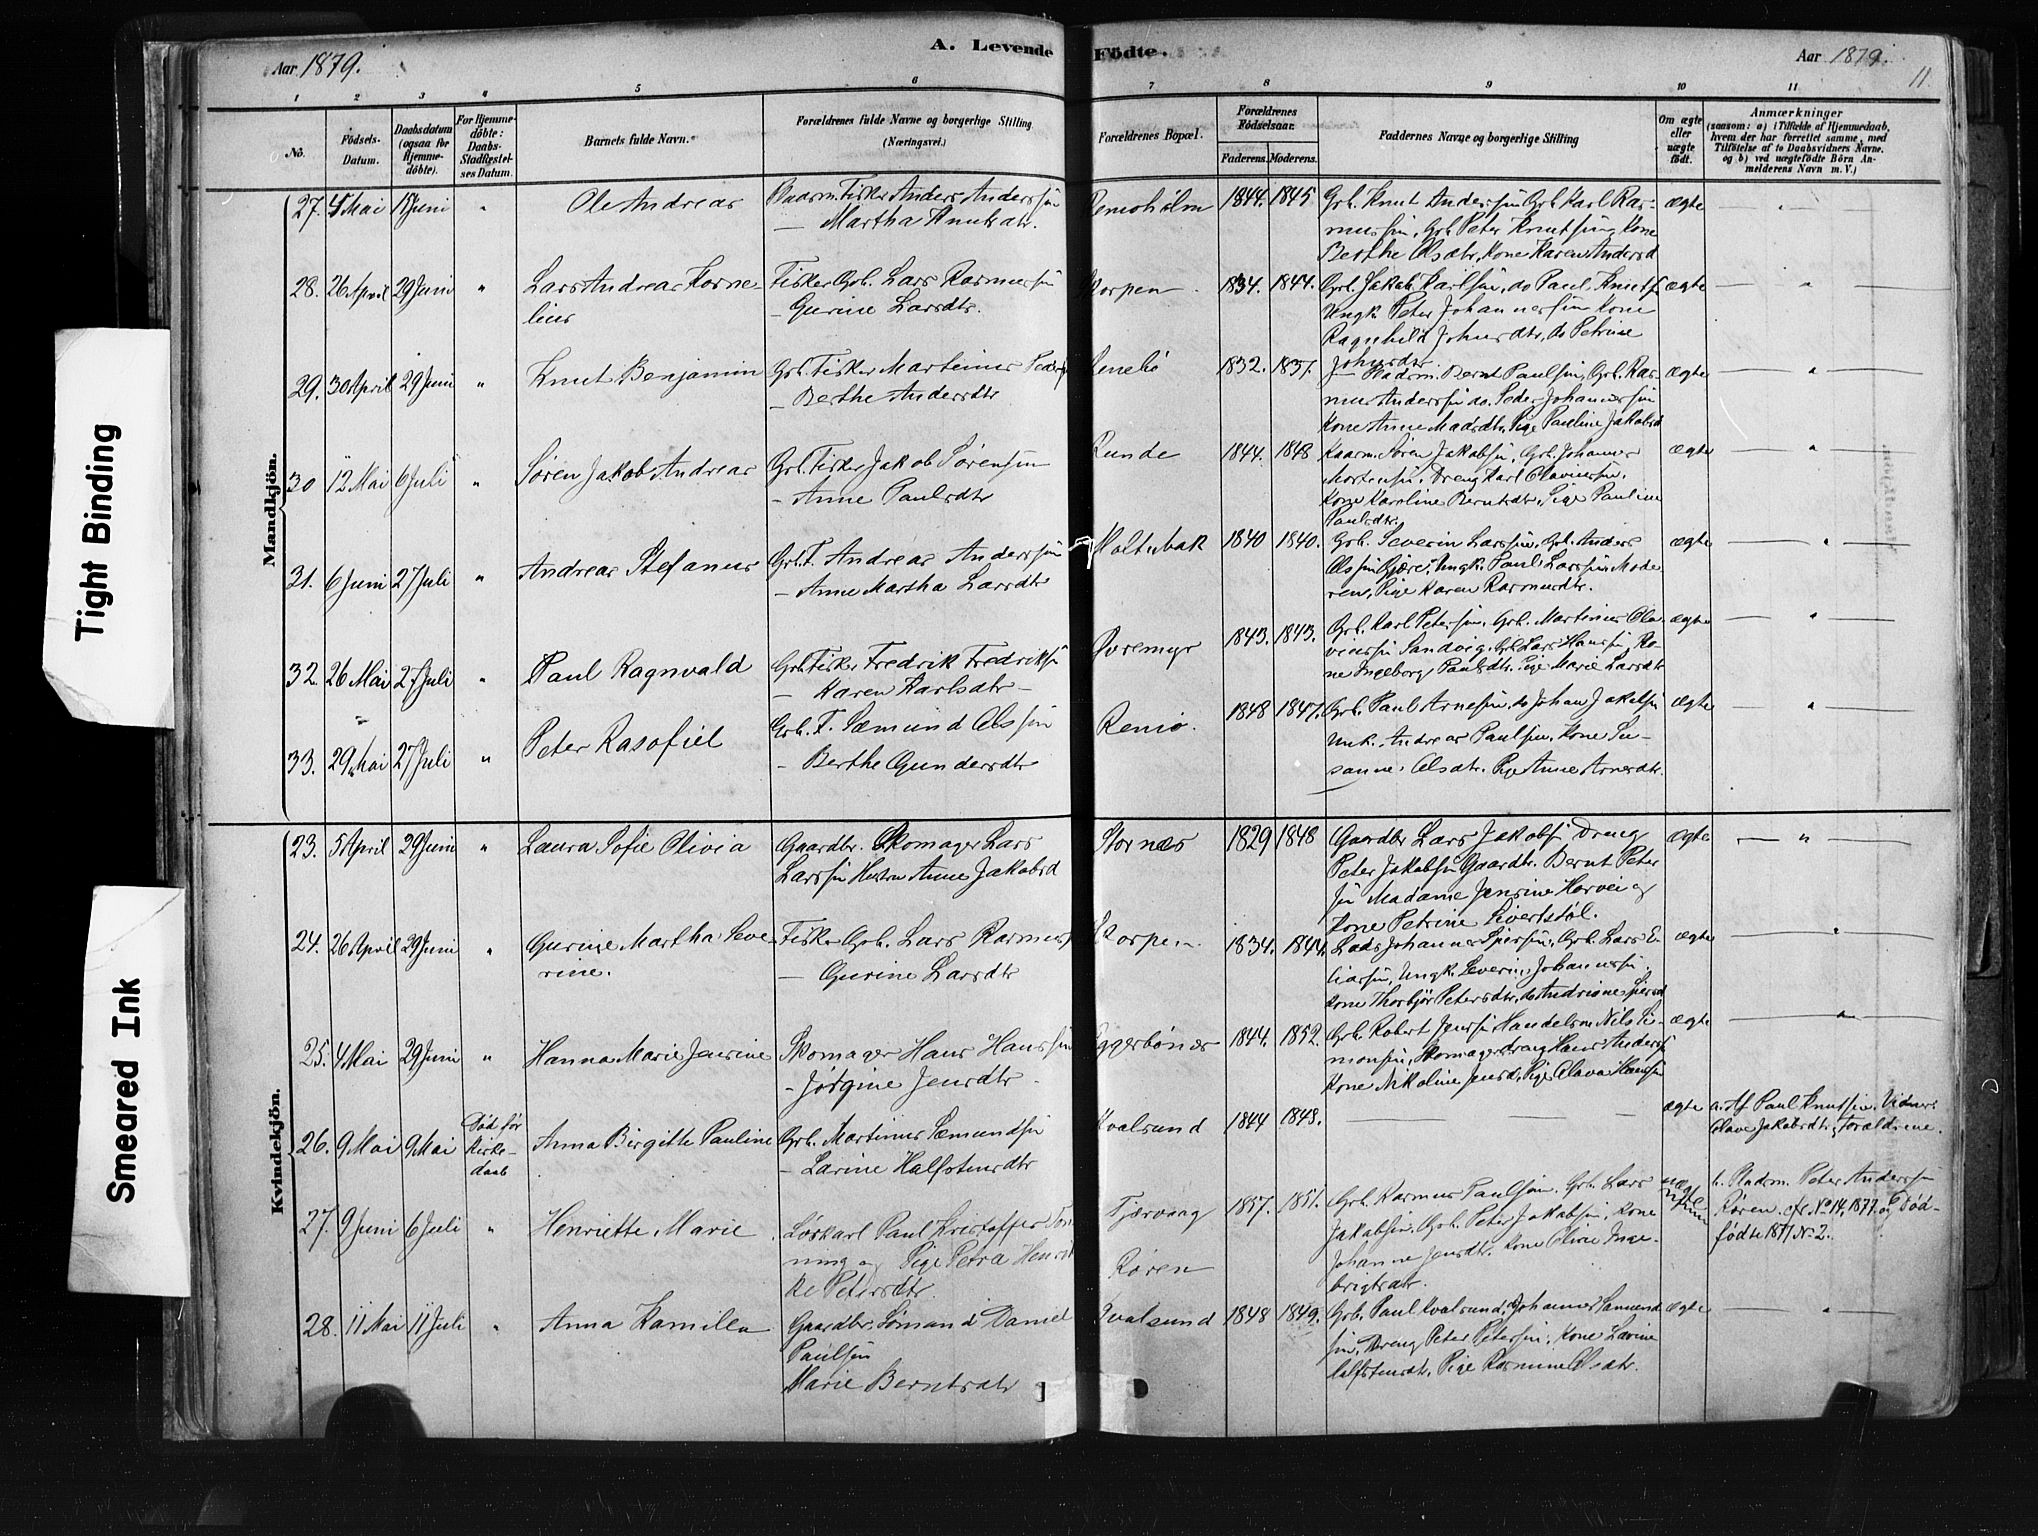 Aar 1879.
A. Levende
Födte.
Aar 1879.
11.
1 2 3 4 5 6 7 8 9 10 11
No.
Födsels-Datum.
Daabsdatum (ogsaa for Hjemmedöbte).
For Hjemmedöbte: Daabs-Stadfæstelses Datum.
Barnets fulde Navn.
Forældrenes fulde Navne og borgerlige Stilling (Næringsvei.)
Forældrenes Bopæl.
Forældrenes Födselsaar.
Faderens. Moderens.
Faddernes Navne og borgerlige Stilling
Om ægte eller uægte födt.
Anmærkninger
(saasom: a) i Tilfælde af Hjemmedaab, hvem der har forrettet samme, med Tilföielse af to Daabsvidners Navne, og b) ved uægtefödte Börn Anmelderens Navn m. V.)
Mandkjön.
27. 4 Mai Juni " Ole Andreas
Fisker Anders Anderssøn
— Martha Knutsdtr.
Remøholm 1844. 1845
Grb. Knut Anderssøn Grb. Karl Rasmussøn, Grb. Peter Knutsøn, Kone
Berthe Olsdtr, Kone Karen Andersd
ægte
28. 26 April 29 Juni " Lars Andreas Kornelius
Fisker Grb. Lars Rasmussøn
— Gurine Larsdtr.
1834. 1844.
Grb. Jakob Karlsøn, do Paul Knuts
Ungk. Peter Johannessøn Kone
Ragnhild Johnsdtr, do Petrine
Johnsdtr
ægte
29. 30 April 29 Juni " Knut Benjamin
Grb. Fisker Martinus Peders
— Berthe Andersdtr
1832. 1837.
Bernt Paulsøn, Grb. Rasmus Anderssøn do. Peder Johannessøn
Kone Anne Madsdtr, Pige Pauline Jakobsd
ægte
30 12 Mai 6 Juli " Søren Jakob Andreas
Grb. Fisker Jakob Sørensøn
— Anne Paulsdtr
Runde 1844. 1848
Kaarm. Søren Jakobsøn, Grb. Johannes
Mortensøn, Dreng Karl Olaviussøn,
Kone Karoline Berntsdtr, Pige Pauline
Paulsdtr.
ægte
31. 6 Juni 27 Juli " Andreas Stefanus
Grb. F. Andreas Anderssøn
— Anne Martha Larsdtr
Moltubak 1840 1840.
Grb. Severin Larssøn, Grb. Anders
Olssøn Gjære, Ungk. Paul Larssøn
Pige Karen Rasmusdtr.
ægte
32. 26 Mai 27 Juli " Paul Ragnvald
Grb. Fisker Fredrik Fredriksøn
— Karen Karlsdtr —
Øvremyr 1843. 1843.
Grb. Karl Petersøn, Grb. Martinus Olaviussøn Sandvig, Grb. Lars Hanssøn, Kone Ingeborg Paulsdtr. Pige Marie Larsdtr
ægte
33. 29 Mai 27 Juli " Peter Rasofiel
Grb. F. Sæmund Olssøn
— Berthe Gundersdtr
Remø. 1848 1847.
Grb. Paul Arnesøn, do Johan Jakobsøn
Unk. Andreas Paulsøn, Kone Susanne Olsdtr. Pige Anne Arnesdtr.
ægte
Kvindekjön.
23. 5 April 29 Juni " Laura Sofie Olivia
Gaardbr. Skomager Lars
Larssøn Hustru Anne Jakobsd
Stornæs 1829 1848
Gaardbr Lars Jakobs Dreng
Peter Jakobsøn Gaardbr. Bernt Petersøn Madame Jensine Horvei og
Kone Petrine Sivertstøl.
ægte
24. 26 April 29 Juni " Gurine Martha Severine.
Fisker Grb. Lars Rasmuss
— Gurine Larsdtr
1834. 1844.
Lods Johannes Spersøn, Grb. Lars Eliassøn, Ungk. Severin Johannessøn
Kone Thorbjør Petersdtr, do Andriane Spersd
ægte
25. 4 Mai 29 Juni " Hanna Marie Jensine
Skomager Hans Hanssøn
— Jørgine Jensdtr —
Eggesbønes 1844. 1852.
Grb. Robert Jenssøn Handelsm Nils Simonsøn, Skomagerdreng Hans Anderss
Kone Nikoline Jensd, Pige Olava
ægte
26. 9 Mai 9 Mai Død før Kirkedaab
Anna Birgitte Pauline
Grb. Martinus Sæmundsøn
— Larine Halfstensdtr
Kvalsund 1844 1848.
ægte
a. Af Paul Knutsøn. Vidner
Olave Jakobsdtr, Forældrene.
27. 9 Juni 6 Juli " Henriette Marie
Løskarl Paul Kristoffer
og Pige Petra Henrikke Petersdtr.
Tjørvaag
Røren
1857. 1851.
Grb. Rasmus Paulsøn. Grb. Lars
Jakobsøn, Grb. Peter Jakobsøn, Kone
Johanne Jensdtr. Kone Olivie Ingebrigtsdtr.
b. Peter Anderssøn
Røren. cfr No 14, 1877 og Dødfødte 1877 No 2.
28. 11 Mai 11 Juli " Anna Kamilla
Gaardbr. Sømand Daniel
Paulsøn
Marie Berntsdtr
Kvalsund 1848 1849.
Grb. Paul Kvalsund, Johannes Sæmundsøn, Dreng Peter Petersøn, Kone Larine
Halfstensdtr, Pige Rasmine Olsdtr.
ægte
Tight Binding
Smeared Ink